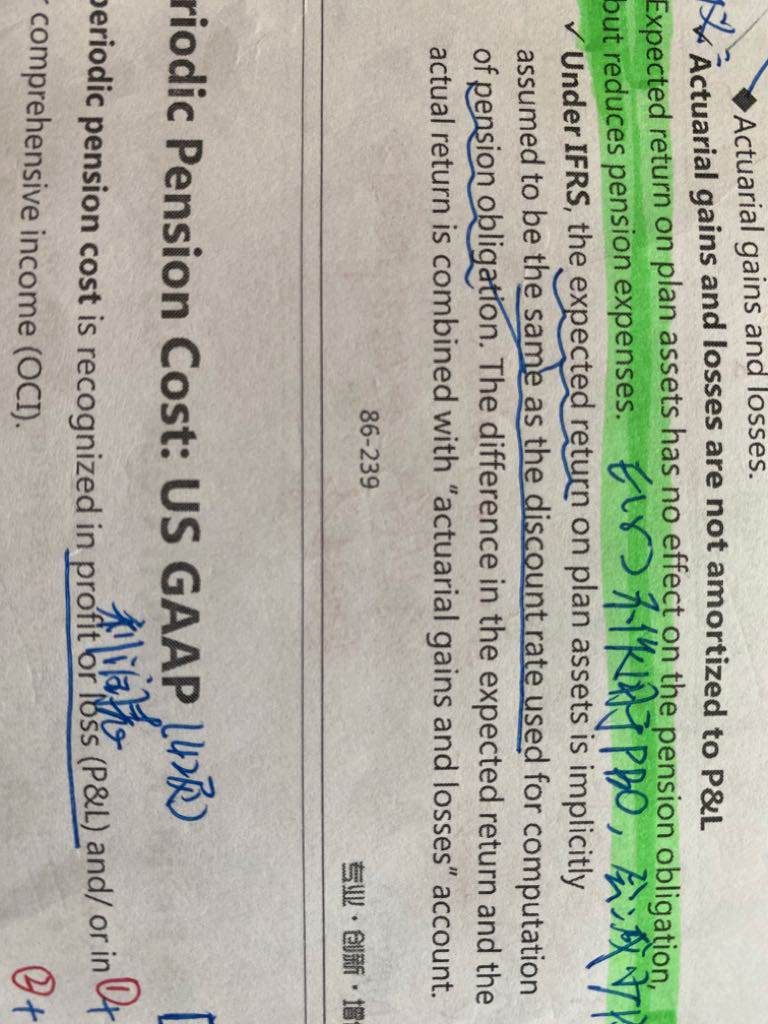 Actuarial gains and losses.
Actuarial gains and losses are not amortized to P&L
Expected return on plan assets has no effect on the pension obligation,
but reduces pension expenses.
不影响PBO,会减
✓ Under IFRS, the expected return on plan assets is implicitly
assumed to be the same as the discount rate used for computation
of pension obligation. The difference in the expected return and the
actual return is combined with “actuarial gains and losses” account.
86-239
专业·创新·增
riodic Pension Cost: US GAAP
利润表
periodic pension cost is recognized in profit or loss (P&L) and/ or in
①+
comprehensive income (OCI).
②+